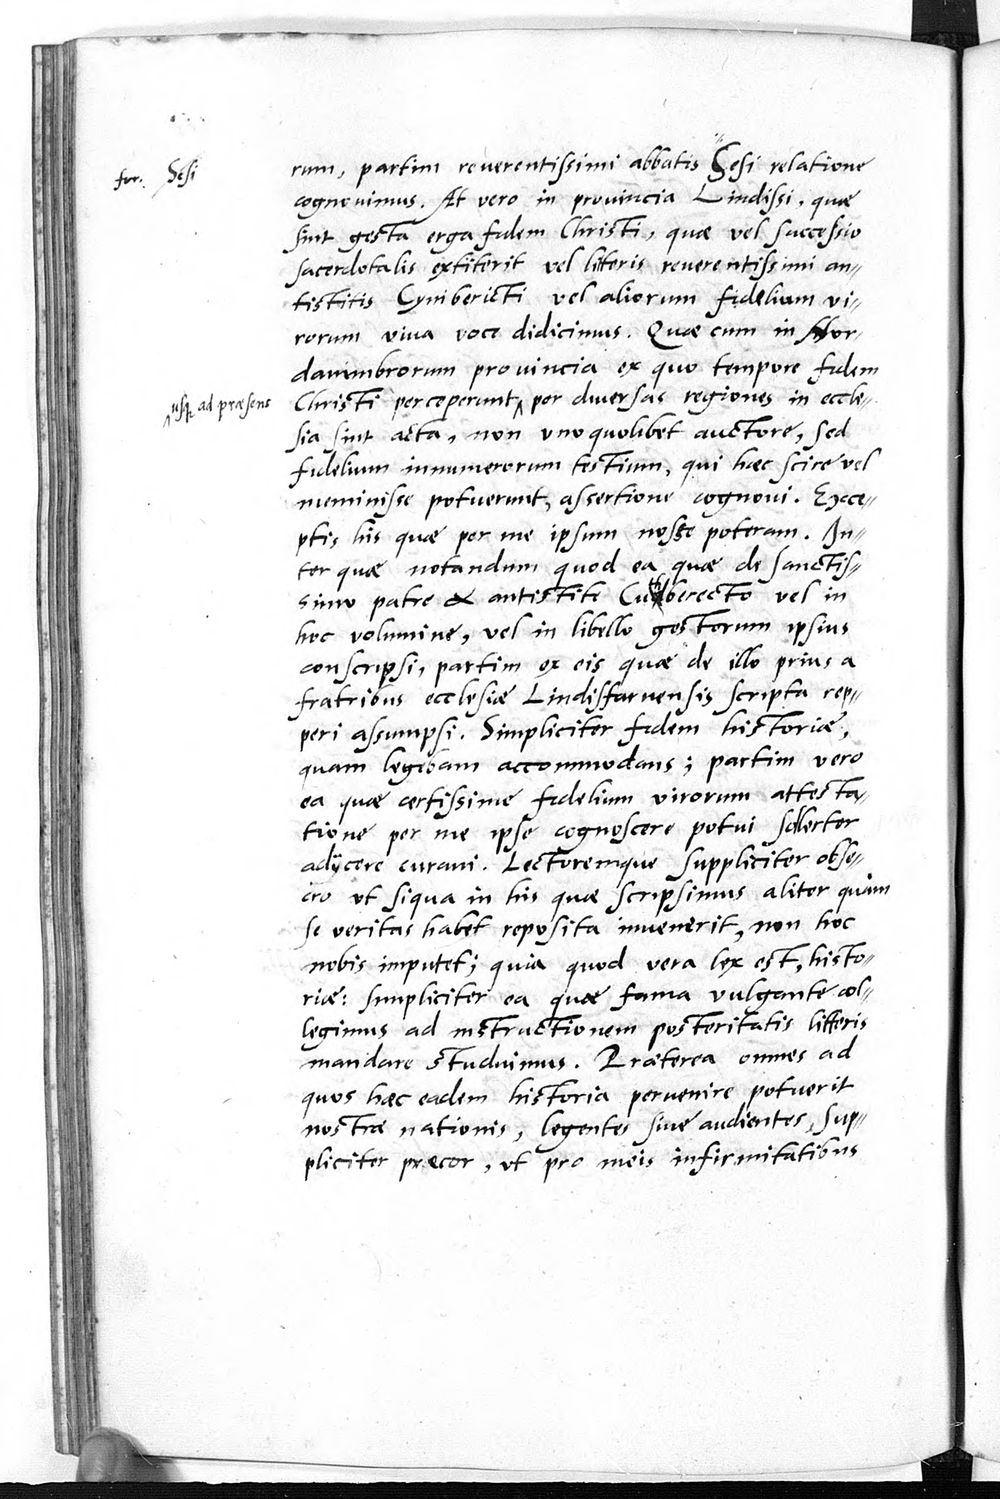 for. Sesi
rum, partim reverentissimi abbatis Sesi relatione
cognovimus. At vero in provincia Lindissi, quæ
sint gesta erga fidem Christi, quæ vel successio
sacerdotalis extiterit vel litteris reverentissimi an„
tistitis Cynibericti vel aliorum fidelium vi„
rorum viva voce didicimus. Quæ cum in Nor-
danimbrorum provincia ex quo tempore fidem
usq ad præsens
Christi perceperunt, per diversas regiones in eccle-
sia sint acta, non uno quolibet auctore, sed
fidelium innumerorum testium, qui hæc scire vel
meminisse potuerunt, assertione cognovi. Exce„
ptis his quæ per me ipsum nosse poteram. In„
ter quæ notandum quod ea quæ de sanctis„
simo patre & antistite Cuthberecto vel in
hoc volumine, vel in libello gestorum ipsius
conscripsi, partim ex eis quæ de illo prius a
fratribus ecclesiæ Lindisfarnensis scripta rep„
peri assumpsi. Simpliciter fidem historiæ,
quam legebam accommodans; partim vero
ea quæ certissime fidelium virorum attesta„
tione per me ipse cognoscere potui solerter
adijcere curavi. Lectoremque suppliciter obse„
cro ut siqua in his quæ scripsimus aliter quàm
se veritas habet reposita invenerit, non hoc
nobis imputet; quia quod vera lex est, histo„
riæ: simpliciter ea quæ fama vulgante col„
legimus ad instructionem posteritatis litteris
mandare studuimus. Præterea omnes ad
quos hæc eadem historia pervenire potuerit
nostræ nationis, legentes sive audientes, sup„
pliciter precor, ut pro meis infirmitatibus